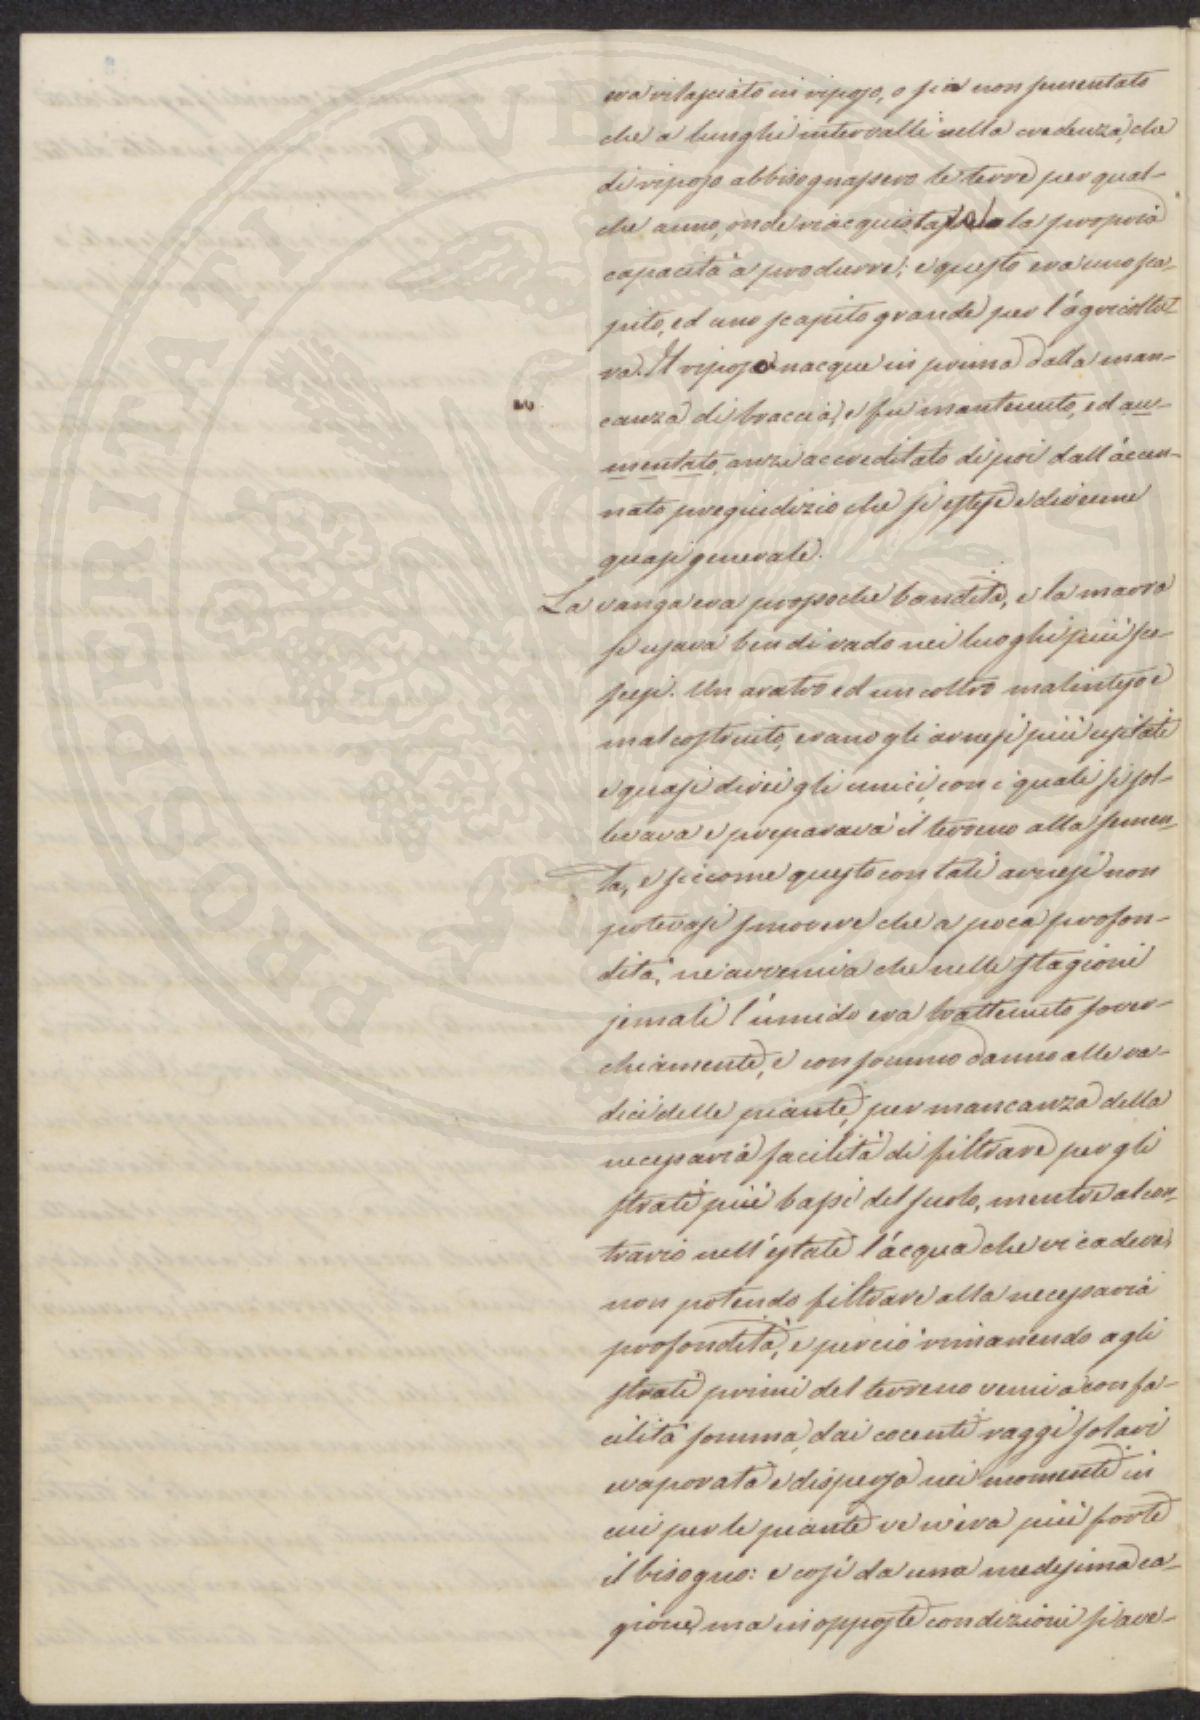 era rilasciato in riposo, o sia non sementato
che a lunghi intervalli nella credenza, che
di riposo abbisognassero le terre per qual-
che anno, onde riacquistare la propria
capacità a produrre; e questo era uno sca-
pito, ed uno scapito grande per l'agricoltu-
ra. Il riposo nacque in prima dalla man-
canza di braccia, e fu mantenuto, ed au-
mentato, anzi accreditato di poi dall'accen-
nato pregiudizio che si estese e divenne
quasi generale.
La vanga era pressoche bandita, e la marra
si usava ben di rado nei luoghi più sco-
scesi. Un aratro ed un coltro malinteso e
mal costruito, erano gli arnesi più usitati
e quasi direi gli unici, con i quali si sol-
levava e preparava il terreno alla semen-
ta, e siccome questo con tali arnesi non
potevasi smovere che a poca profon-
dità, ne avveniva che nelle stagioni
jemali l'umido era trattenuto sover-
chiamente, e con sommo danno alle ra-
dici delle piante, per mancanza della
necessaria facilità di filtrare per gli
strati più bassi del suolo, mentre al con-
trario nell'estate l'acqua che vi cadeva,
non potendo filtrare alla necessaria
profondità, e perciò rimanendo agli
strati primi del terreno veniva con fa-
cilità somma, dai cocenti raggi solari
evaporata e dispersa nei momenti in
cui per le piante ve n'era più forte
il bisogno: e così da una medesima ca-
gione, ma in opposte condizioni si ave-
PROSPERITATI PUBLICAE